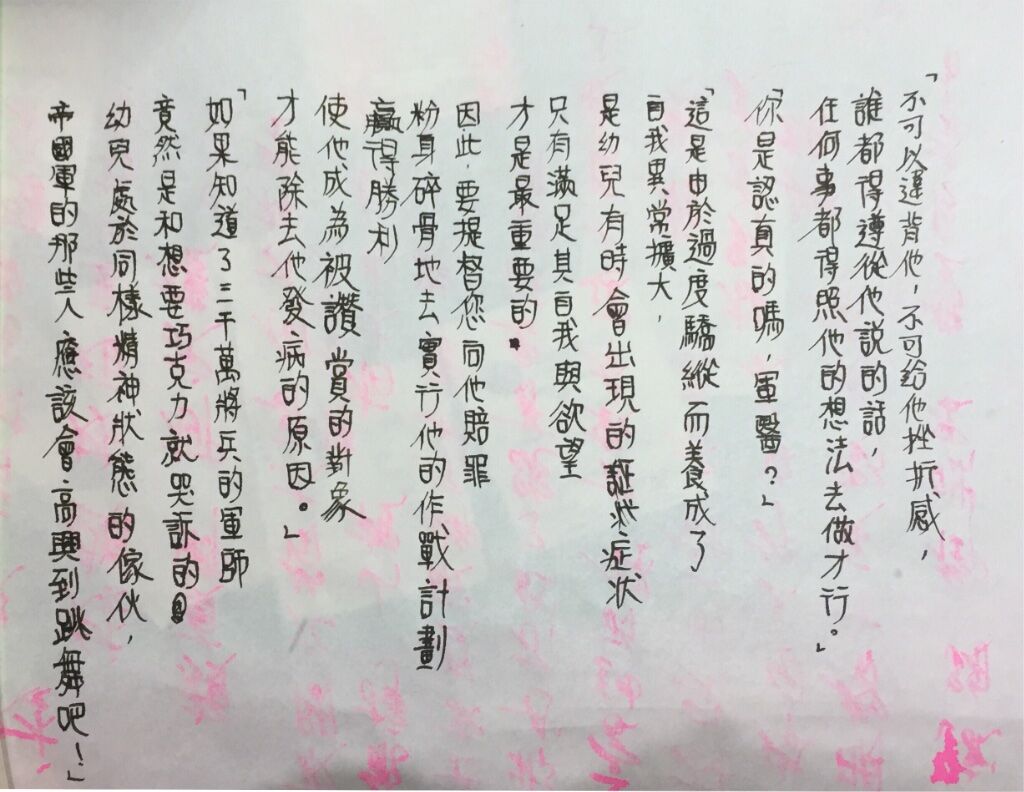 「不可以違背他，不可給他挫折感，
誰都得遵從他說的話，
任何事都得照他的想法去做才行。」
「你是認真的嗎，軍醫？」
「這是由於過度驕縱而養成了
自我異常擴大，
是幼兒有時會出現的症狀
只有滿足其自我與欲望
才是最重要的。
因此，要提督您向他賠罪
粉身碎骨地去實行他的作戰計劃
贏得勝利
使他成為被讚賞的對象
才能除去他發病的原因。」
「如果知道了三千萬將兵的軍師
竟然是和想要巧克力就哭訴的
幼兒處於同樣精神狀態的傢伙，
帝國軍的那些人應該會高興到跳舞吧！」